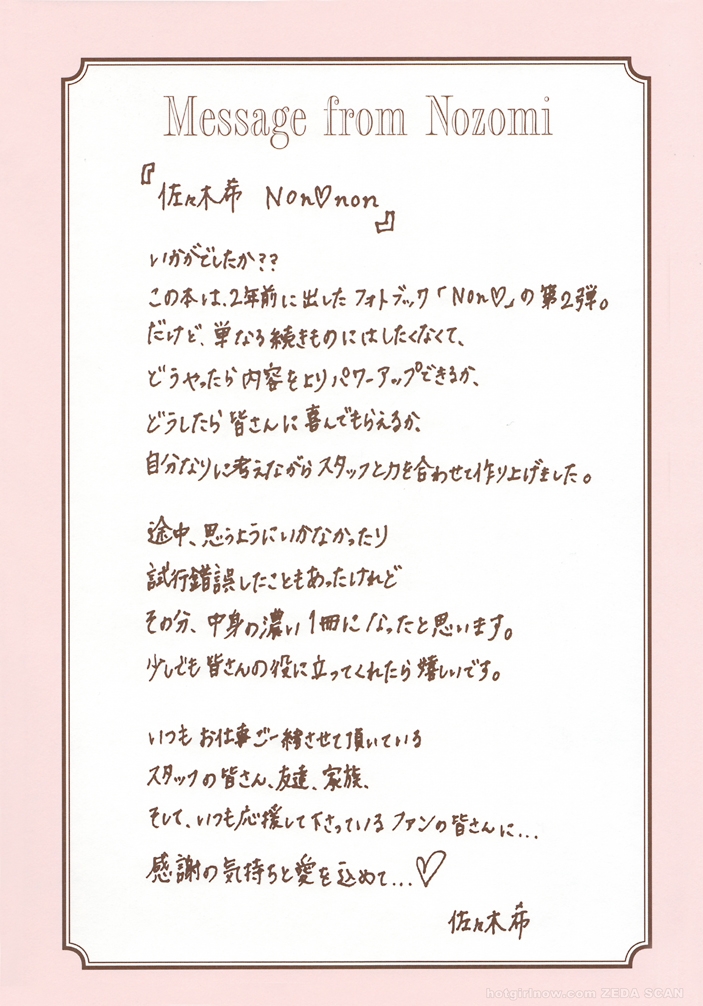 Message from Nozomi
『佐々木希 Non♡non』
いかがでしたか??
この本は、2年前に出したフォトブック「Non♡」の第2弾。
だけど、単なる続きものにはしたくなくて、
どうやったら内容をよりパワーアップできるか、
どうしたら皆さんに喜んでもらえるか、
自分なりに考えながらスタッフと力を合わせて作り上げました。
途中、思うようにいかなかったり
試行錯誤したこともあったけれど
その分、中身の濃い1冊になったと思います。
少しでも皆さんの役に立ってくれたら嬉しいです。
いつもお仕事ご一緒させて頂いている
スタッフの皆さん、友達、家族、
そして、いつも応援して下さっているファンの皆さんに...
感謝の気持ちと愛を込めて...♡
佐々木希
hotgirlnow.com ZEDA SCAN